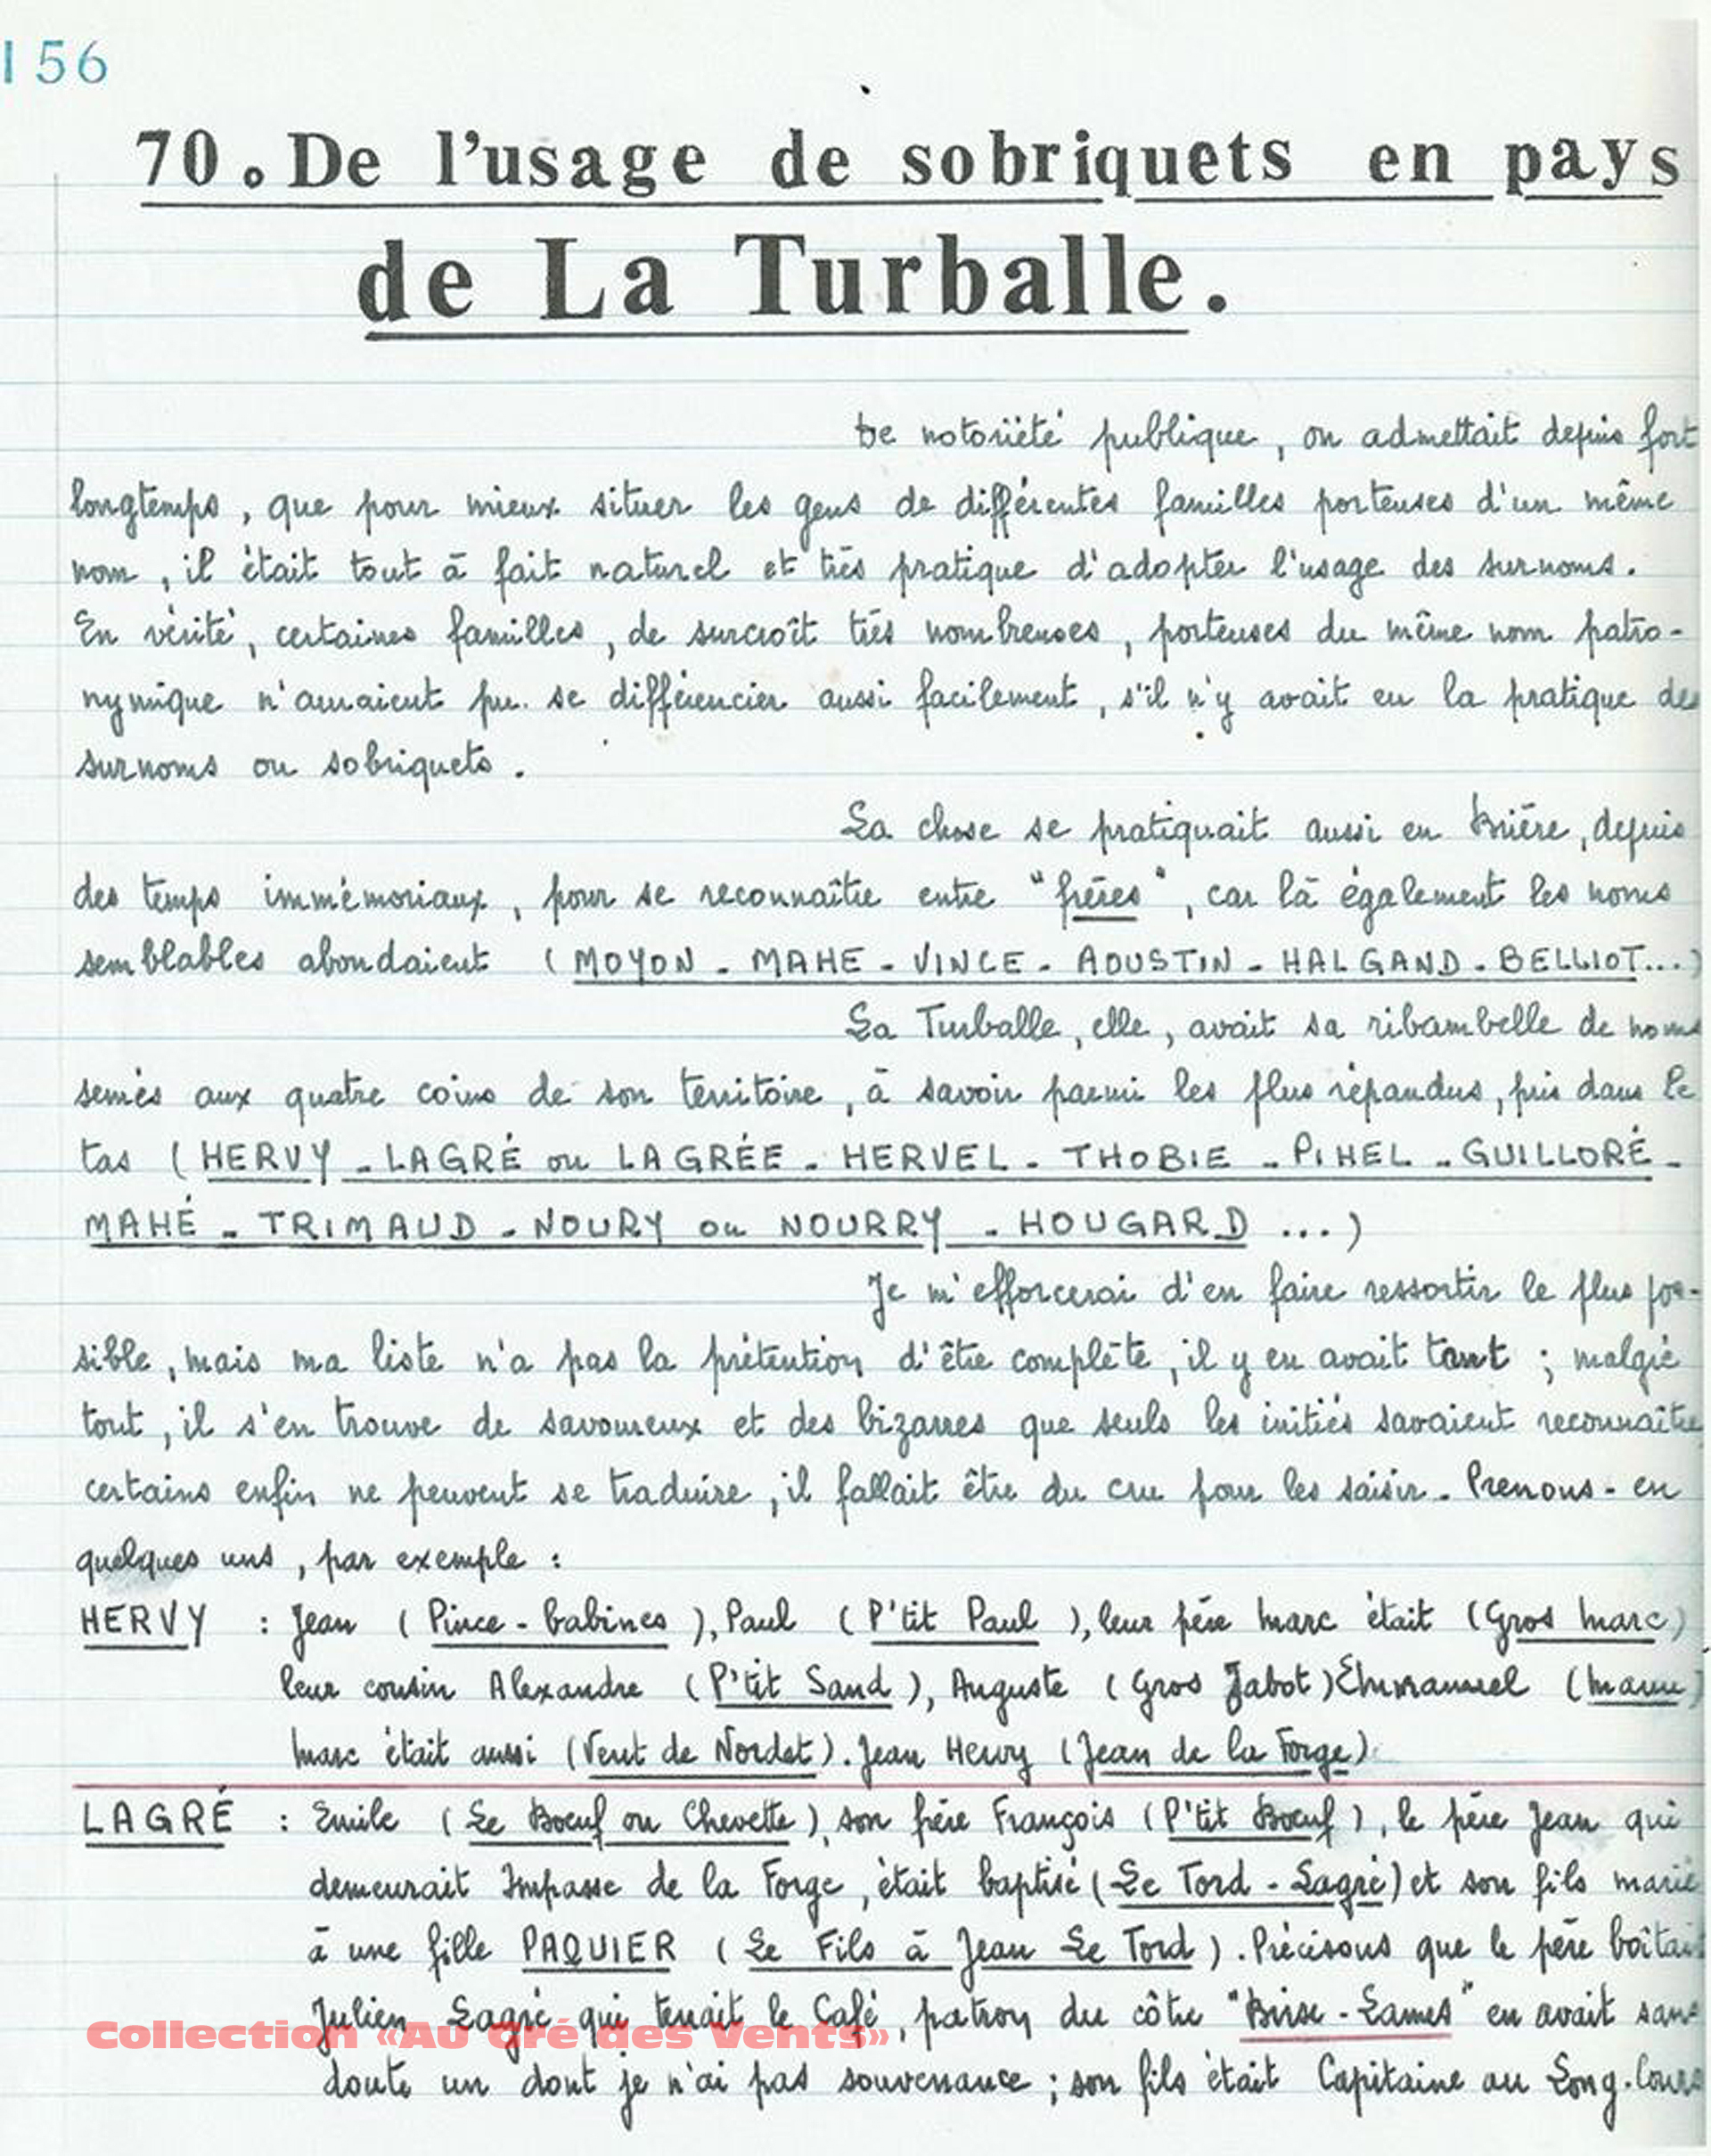 156
70. De l'usage de sobriquets en pays
de La Turballe.
De notoriété publique, on admettait depuis fort
longtemps, que pour mieux situer les gens de différentes familles porteuses d'un même
nom, il était tout à fait naturel et très pratique d'adopter l'usage des surnoms.
En vérité, certaines familles, de surcroît très nombreuses, porteuses du même nom patro-
nymique n'auraient pu se différencier aussi facilement, s'il n'y avait eu la pratique des
surnoms ou sobriquets.
La chose se pratiquait aussi en Brière, depuis
des temps immémoriaux, pour se reconnaître entre "frères", car là également les noms
semblables abondaient (MOYON - MAHE - VINCE - AOUSTIN - HALGAND - BELLIOT...)
La Turballe, elle, avait sa ribambelle de noms
semés aux quatre coins de son territoire, à savoir parmi les plus répandus, pris dans le
tas (HERVY - LAGRÉ ou LAGRÉE - HERVEL - THOBIE - PIHEL - GUILLORÉ -
MAHÉ - TRIMAUD - NOURY ou NOURRY - HOUGARD ...)
Je m'efforcerai d'en faire ressortir le plus pos-
sible, mais ma liste n'a pas la prétention d'être complète, il y en avait tant ; malgré
tout, il s'en trouve de savoureux et des bizarres que seuls les initiés savaient reconnaître
certains enfin ne peuvent se traduire, il fallait être du cru pour les saisir. Prenons-en
quelques uns, par exemple :
HERVY : Jean (Pince-babines), Paul (P'tit Paul), leur père Marc était (Gros Marc)
leur cousin Alexandre (P'tit Sand), Auguste (Gros Jabot) Emmanuel (Manu)
Marc était aussi (Vent de Nordet). Jean Hervy (Jean de la Forge)
LAGRÉ : Emile (Le Boeuf ou Chevette), son frère François (P'tit Boeuf), le père Jean qui
demeurait Impasse de la Forge, était baptisé (Le Tord-Lagré) et son fils marié
à une fille PAQUIER (Le Fils à Jean Le Tord). Précisons que le père boîtait
Julien Lagré qui tenait le Café, patron du côtre "Brise-Lames" en avait sans
doute un dont je n'ai pas souvenance ; son fils était Capitaine au Long-Cours
Collection «Au Gré des Vents»